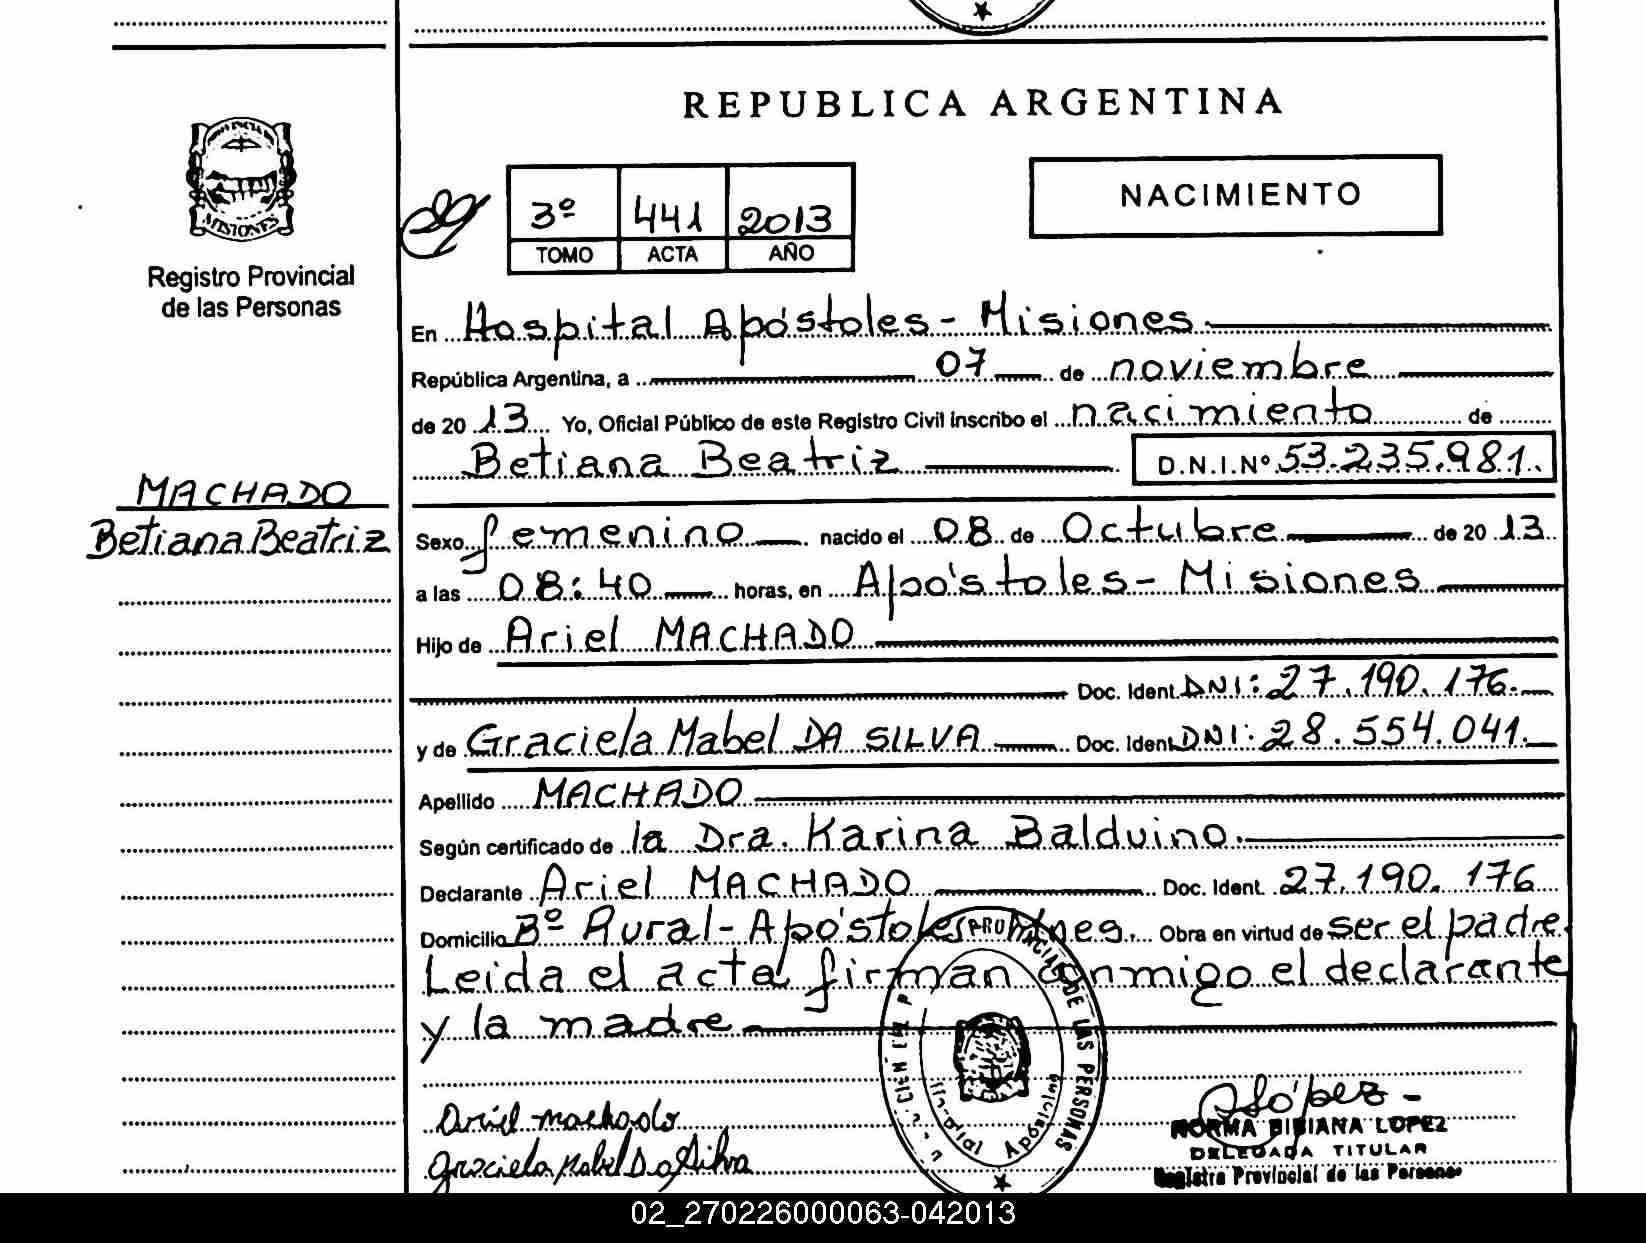 REPUBLICA ARGENTINA
MISIONES
Registro Provincial
de las Personas
NACIMIENTO
3º 441 2013
TOMO ACTA AÑO
En Hospital Apóstoles - Misiones.
República Argentina, a 07 de noviembre
de 2013 Yo, Oficial Público de este Registro Civil inscribo el nacimiento de
Betiana Beatriz D.N.I.Nº 53.235.981.
MACHADO
Betiana Beatriz
Sexo femenino nacido el 08 de Octubre de 2013
a las 08:40 horas, en Apóstoles - Misiones
Hijo de Ariel MACHADO
Doc. Ident. DNI: 27.190.176.
y de Graciela Mabel DA SILVA Doc. Ident DNI: 28.554.041.
Apellido MACHADO
Según certificado de la Dra. Karina Balduino.
Declarante Ariel MACHADO Doc. Ident. 27.190.176
Domicilio Bº Rural - Apóstoles Mnes. Obra en virtud de ser el padre.
Leida el acta firman conmigo el declarante
y la madre
DE LAS PERSONAS
Apóstoles
Ariel machado
Graciela Mabel Da Silva
López
NORMA BIBIANA LOPEZ
DELEGADA TITULAR
Registro Provincial de las Personas
02_270226000063-042013